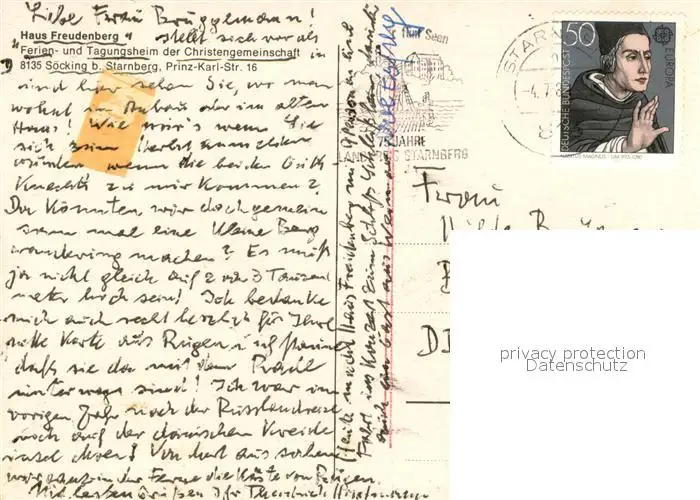 Liebe Frau Brüggemann!
Haus Freudenberg" stellt sich vor als
"Ferien- und Tagungsheim der Christengemeinschaft in
8135 Söcking b. Starnberg, Prinz-Karl-Str. 16
sind hier sehen Sie, wo man
wohnt im Anbau oder im alten
Haus! Wie wär's wenn Sie
sich zum Herbst anmelden
würden wenn die beiden
zu mir kommen?
Da könnten wir doch gemein
sam mal eine kleine Berg
wanderung machen? Es muß
ja nicht gleich auf 2 oder 3 Tausend
meter hoch sein! Ich bedanke
mich auch recht herzlich für Ihre
nette Karte aus Rügen, u. ich staune
daß sie da mit dem Rade
unterwegs sind! Ich war im
vorigen Jahr nach der Russlandreise
noch auf der dänischen Kreide
insel Moen! Von dort aus sahen
wir auch in der Ferne die Küste von Rügen.
Mit lieben Grüßen Ihr
Heute macht Haus Freudenberg mit
Fahrt ins Konzert zum Schloß
auch ein Gast aus
fünf Seen
75 JAHRE
LANDKREIS STARNBERG
STARN
-4.7.8
50
DEUTSCHE BUNDESPOST
EUROPA
ALBERTUS MAGNUS · UM 1193-1280
Frau
privacy protection
Datenschutz